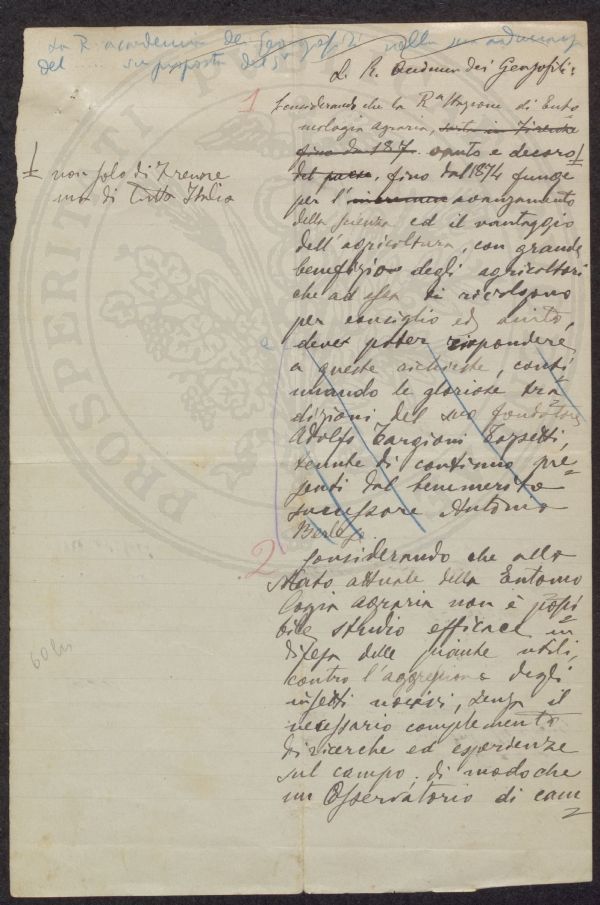 La R. accademia dei Georgofili nella sua adunanza
del ..... su proposta del Sr
La R. Accademia dei Georgofili:
1 Considerando che la Ra Stazione di Ento
mologia agraria, sorta in Firenze
fino da 187. vanto e decoro
del paese, fino dal 1874 funge
per l' avanzamento
della scienza ed il vantaggio
dell'agricoltura, con grande
benefizio degli agricoltori
che ad essa si rivolgono
per consiglio ed aiuto,
dever poter rispondere
a queste richieste, conti
nuando le gloriose tra
dizioni del suo fondatore
Adolfo Targioni Tozzetti,
tenute di continuo pre
senti dal benemerito
successore Antonio
Berlese.
non solo di Firenze
ma di tutta Italia
2 Considerando che allo
stato attuale della Entomo
logia agraria non è possi
bile studio efficace in
difesa delle piante utili,
contro l'aggressione degli
insetti nocivi, senza il
necessario complemento
di ricerche ed esperienze
sul campo; di modo che
un Osservatorio di cam